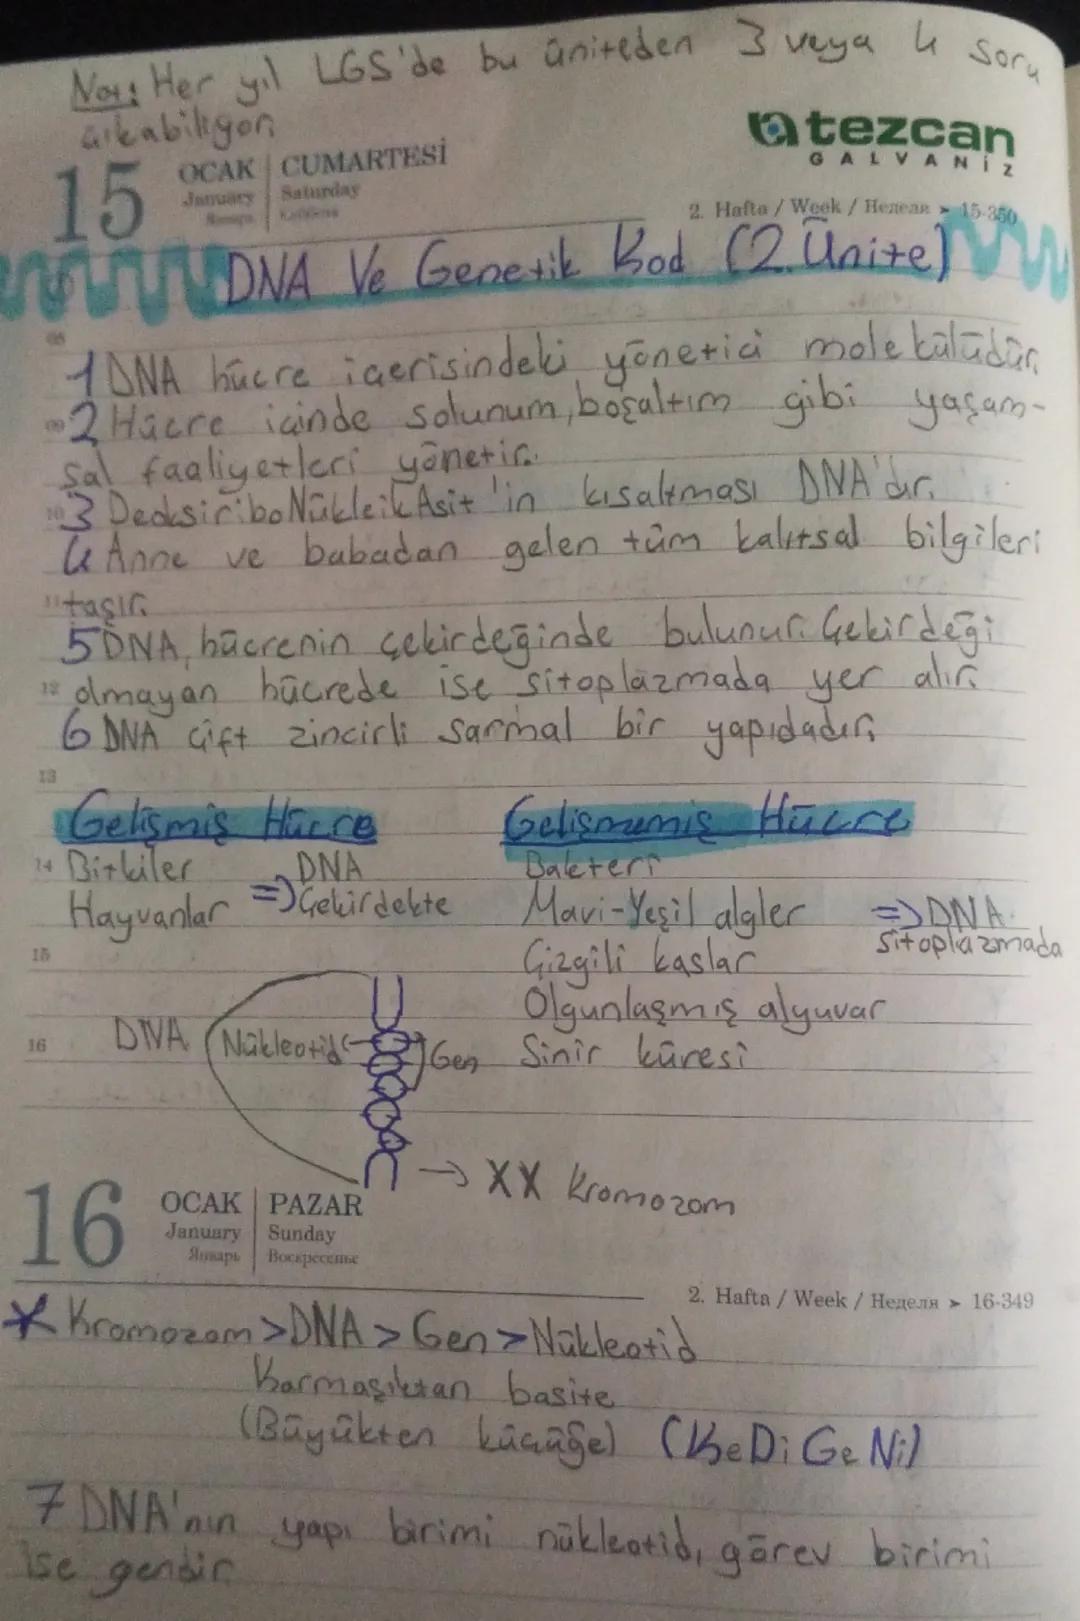 Not: Her yıl LGS'de bu üniteden 3 veya 4 soru
çıkabiliyor.
tezcan
GALVANİZ
15 OCAK CUMARTESİ
January Saturday
Январь Суббота
2. Hafta / Week / Неделя > 15-350
DNA Ve Genetik Kod (2. Ünite)
08
1 DNA hücre içerisindeki yönetici molekülüdür.
09 2 Hücre içinde solunum, boşaltım gibi yaşam-
sal faaliyetleri yönetir.
10 3 DeoksiriboNükleikAsit'in kısaltması DNA'dır.
4 Anne ve babadan gelen tüm kalıtsal bilgileri
11 taşır.
5 DNA, hücrenin çekirdeğinde bulunur. Çekirdeği
12 olmayan hücrede ise sitoplazmada yer alır.
6 DNA çift zincirli sarmal bir yapıdadır.
13
Gelişmiş Hücre Gelişmemiş Hücre
14 Bitkiler DNA Bakteri
Hayvanlar => Çekirdekte Mavi-Yeşil algler => DNA
sitoplazmada
15 Çizgili kaslar
Olgunlaşmış alyuvar
16 DNA Nükleotid Gen Sinir küresi
→ XX Kromozom
16 OCAK PAZAR
January Sunday
Январь Воскресенье
2. Hafta / Week / Неделя > 16-349
* Kromozom > DNA > Gen > Nükleotid
Karmaşıktan basite
(Büyükten küçüğe) (KeDi GeNi)
7 DNA'nın yapı birimi nükleotid, görev birimi
ise gendir.